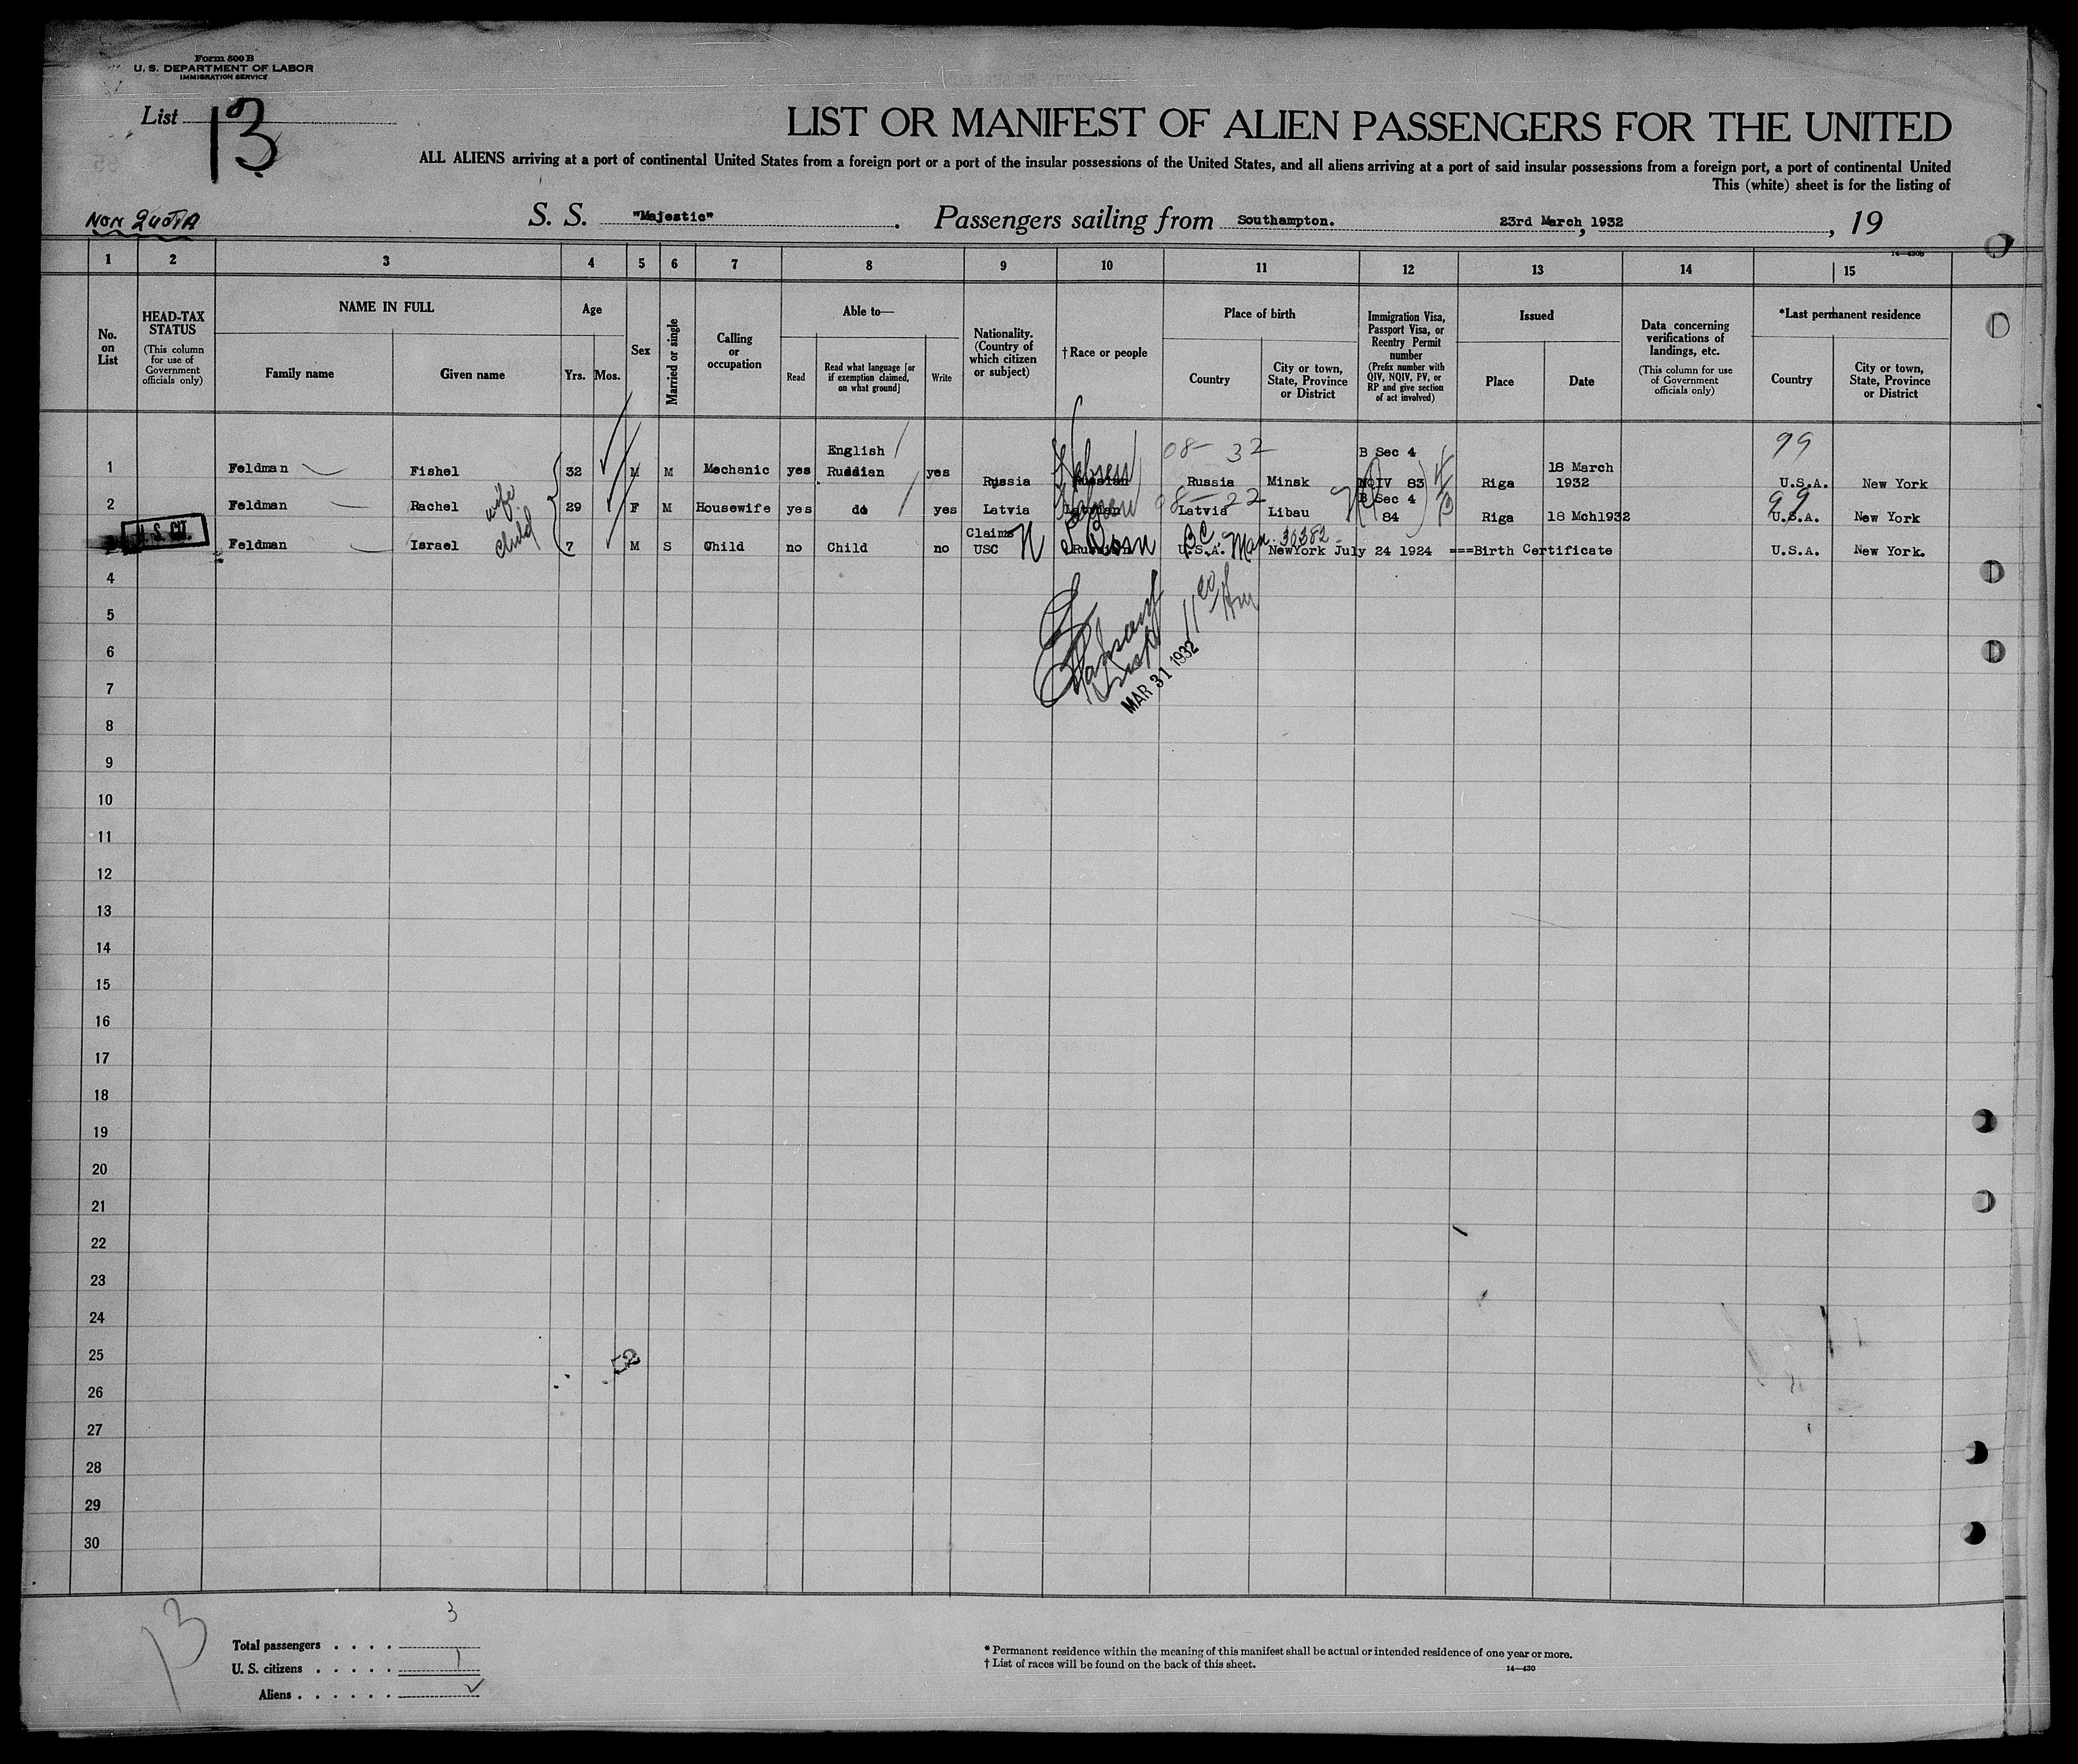 Form 500 B
U. S. DEPARTMENT OF LABOR
IMMIGRATION SERVICE
List 13
LIST OR MANIFEST OF ALIEN PASSENGERS FOR THE UNITED
ALL ALIENS arriving at a port of continental United States from a foreign port or a port of the insular possessions of the United States, and all aliens arriving at a port of said insular possessions from a foreign port, a port of continental United
This (white) sheet is for the listing of
NON QUOTA
S. S. "Majestic". Passengers sailing from Southampton. 23rd March, 1932, 19
14—430B
1 2 3 4 5 6 7 8 9 10 11 12 13 14 15
No. on List
HEAD-TAX STATUS
(This column for use of Government officials only)
NAME IN FULL
Family name Given name
Age
Yrs. Mos.
Sex
Married or single
Calling or occupation
Able to—
Read
Read what language [or if exemption claimed, on what ground]
Write
Nationality. (Country of which citizen or subject)
† Race or people
Place of birth
Country
City or town, State, Province or District
Immigration Visa, Passport Visa, or Reentry Permit number
(Prefix number with QIV, NQIV, PV, or RP and give section of act involved)
Issued
Place Date
Data concerning verifications of landings, etc.
(This column for use of Government officials only)
*Last permanent residence
Country
City or town, State, Province or District
English 08- 32 B Sec 4 99
1 Feldman Fishel 32 M M Mechanic yes Russian yes Russia Hebrew Russian Russia Minsk NQIV 83 Riga 18 March 1932 U.S.A. New York
2 Feldman Rachel wife 29 F M Housewife yes do yes Latvia Hebrew Latvian 08-22 Latvia Libau B Sec 4 84 Riga 18 Mch1932 99 U.S.A. New York
U. S. CIT.
Feldman Israel child 7 M S Child no Child no Claims USC N Russian Born BC U.S.A. Man. 36382 NewYork July 24 1924 ===Birth Certificate U.S.A. New York.
4
5
6
7
11 00 Am
Insp
MAR 31 1932
8
9
10
11
12
13
14
15
16
17
18
19
20
21
22
23
24
25
26
27
28
29
30
13
3
Total passengers . . . .
U. S. citizens . . . . . 1
Aliens . . . . . . 2
* Permanent residence within the meaning of this manifest shall be actual or intended residence of one year or more.
† List of races will be found on the back of this sheet.
14—430